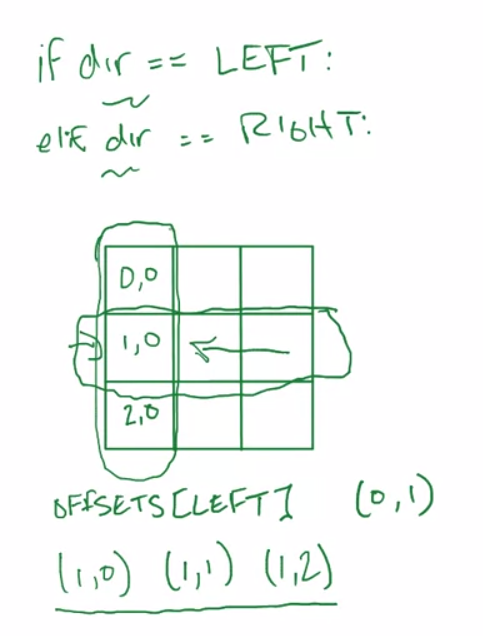 if dir == LEFT:
elif dir == RIGHT:
0,0
1,0
2,0
OFFSETS[LEFT] (0,1)
(1,0) (1,1) (1,2)